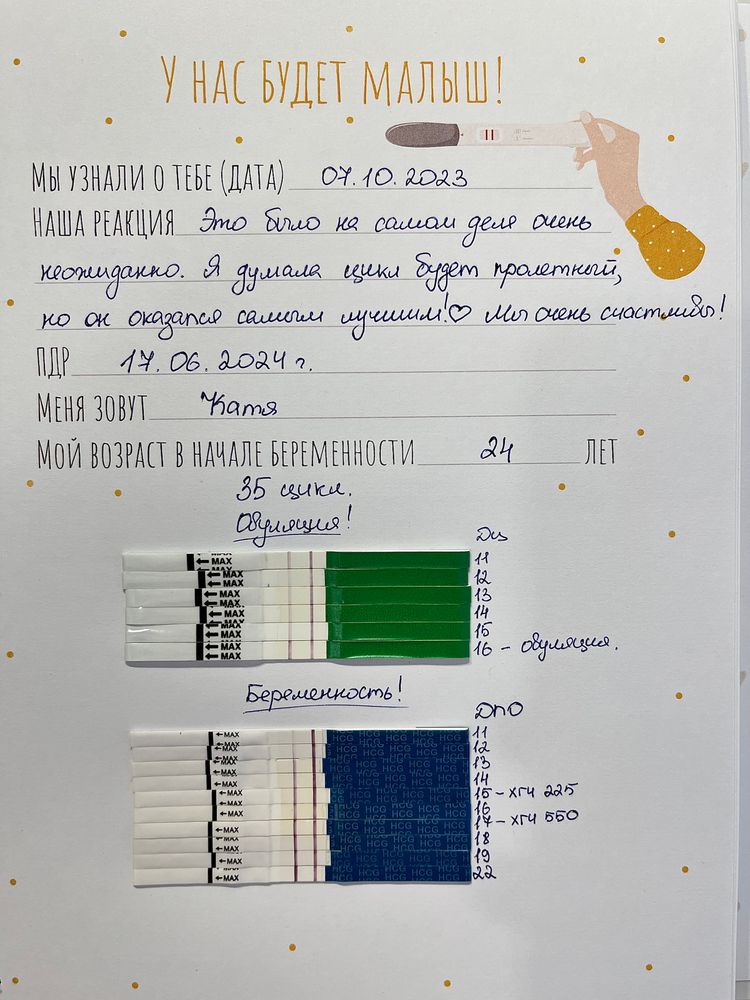 У НАС БУДЕТ МАЛЫШ!
МЫ УЗНАЛИ О ТЕБЕ (ДАТА) 07.10.2023
НАША РЕАКЦИЯ Это было на самом деле очень
неожиданно. Я думала цикл будет пролетный,
но он оказался самым лучшим!♡ Мы очень счастливы!
ПДР 17.06.2024 г.
МЕНЯ ЗОВУТ Катя
МОЙ ВОЗРАСТ В НАЧАЛЕ БЕРЕМЕННОСТИ 24 ЛЕТ
35 цикл.
Овуляция!
Дц
←MAX 11
←MAX 12
←MAX 13
←MAX 14
←MAX 15
←MAX 16 - овуляция.
Беременность!
ДПО
←MAX HCG 11
←MAX HCG 12
←MAX HCG 13
←MAX HCG 14
←MAX HCG 15 - хгч 225
←MAX HCG 16
←MAX HCG 17 - хгч 550
←MAX HCG 18
←MAX HCG 19
←MAX HCG 22